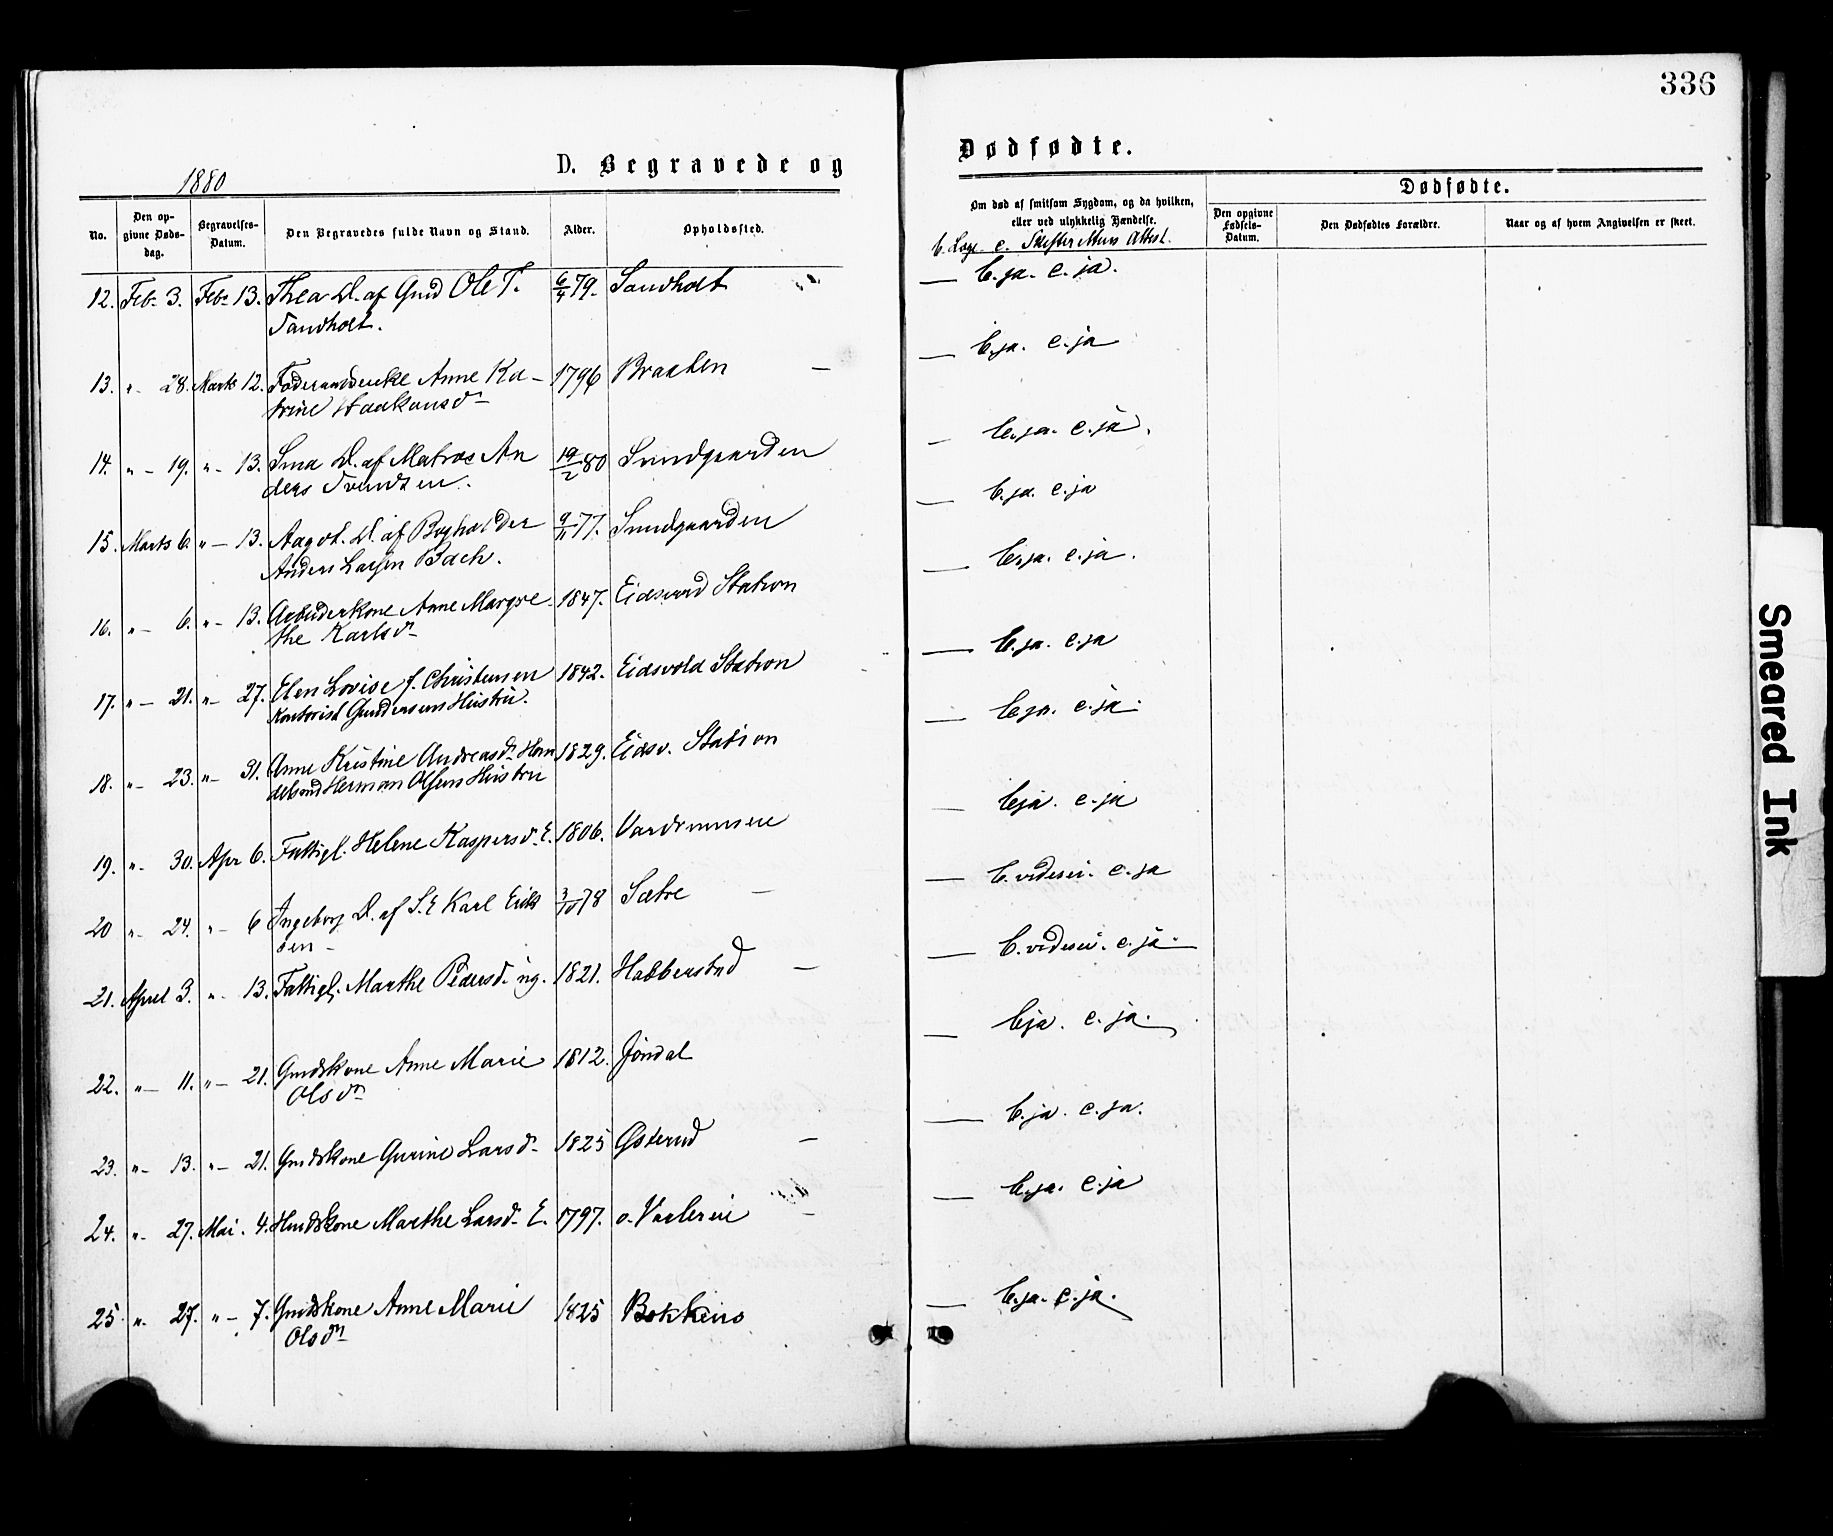 336
1880
D. Begravede og
Dødfødte.
No.
Den opgivne Dødsdag.
Begravelses-Datum.
Den Begravedes fulde Navn og Stand.
Alder.
Opholdssted.
Om død af smitsom Sygdom, og da hvilken,
eller ved ulykkelig Hændelse.
b. Læge c. Skifter Attest.
Dødfødte.
Den opgivne Fødsels-Datum.
Den Dødfødtes Forældre.
Naar og af hvem Angivelsen er skeet.
12. Feb. 3. Feb. 13. Thea D. af Gmd Ole T. 6/4 79. Sandholt — b. ja. c. ja.
Sandholt.
13. " - 28. Marts 12. Føderaadsenke Anne Ka- 1796 Braaten — — b. ja. c. ja
trine Haakonsd
14. " - 19. " - 13. D. af Matros An 19/2 80 Sundgaarden — b. ja. c. ja.
ders Svendsen.
15. Marts 6. " - 13. Aagot D. af Bogholder 9/11 77. Sundgaarden — b. ja. c. ja
Anders Larsen Bach.
16. " - 6. " - 13. Arbeiderkone Anne Margre 1847. Eidsvold Station — b. ja. c. ja.
the Karlsd
17. " - 21. " - 27. Elen Lovise f. Christensen 1842. Eidsvold Station — b. ja. c. ja
Kontorist Gundersens Hustru.
18. " - 23. " - 31. Anne Kristine Andreasd. Han 1829. Eidsv. Station — b. ja. c. ja.
delsmd Herman Olsens Hustru
19. " - 30. Apr 6. Fattigl. Helene Kaspersd. E. 1806. — b ja. c. ja
20 " - 24. " - 6 Ingeborg D. af S.E Karl Erik 3/10 78 Sætre — — b. vides ei. c. ja
sen -
21. April 3. " - 13. Fattigl. Marthe Pedersd. ug. 1821. Habberstad — — b. vides ei. c. ja.
22. " - 11. " - 21. Gmdskone Anne Marie 1812. Jøndal — b ja. c. ja.
Olsd
23. " - 13. " - 21. Gmdskone Gurine Larsd. 1825 Østerud — — b. ja. c. ja.
24. " - 27. Mai. 4. Husmdskone Marthe Larsd. E. 1797. — — b. ja. c. ja
25 " - 27. " - 7. Gmdskone Anne Marie 1825 — b. ja. c. ja.
Olsd
Smeared Ink